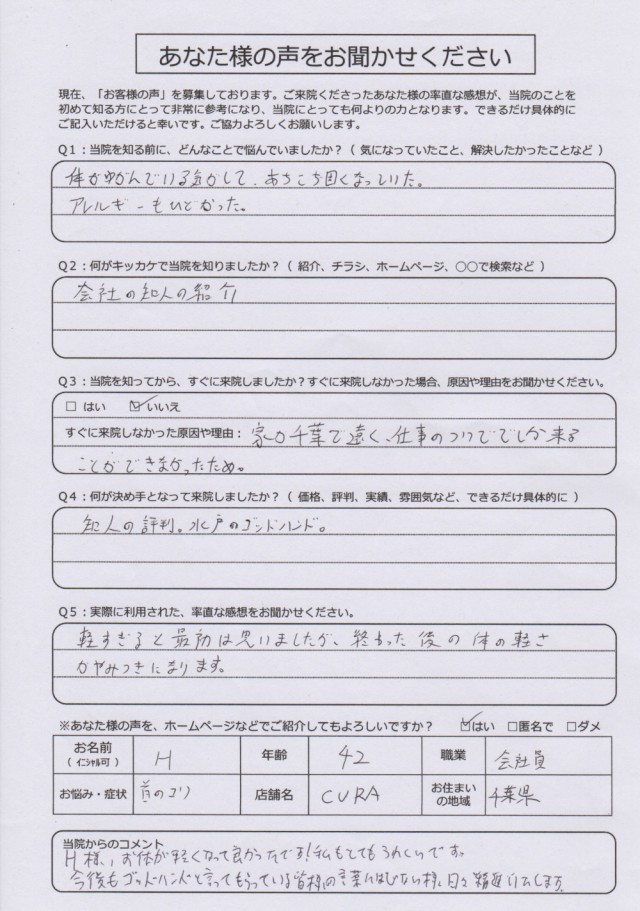 あなた様の声をお聞かせください
現在、「お客様の声」を募集しております。ご来院くださったあなた様の率直な感想が、当院のことを
初めて知る方にとって非常に参考になり、当院にとっても何よりの力となります。できるだけ具体的に
ご記入いただけると幸いです。ご協力よろしくお願いします。
Q1：当院を知る前に、どんなことで悩んでいましたか？（ 気になっていたこと、解決したかったことなど ）
体がゆがんでいる気がして、あちこち固くなっていた。
アレルギーもひどかった。
Q2：何がキッカケで当院を知りましたか？（ 紹介、チラシ、ホームページ、○○で検索など ）
会社の知人の紹介
Q3：当院を知ってから、すぐに来院しましたか？すぐに来院しなかった場合、原因や理由をお聞かせください。
□ はい ☑ いいえ
すぐに来院しなかった原因や理由： 家が千葉で遠く、仕事のついででしか来る
ことができなかったため。
Q4：何が決め手となって来院しましたか？（ 価格、評判、実績、雰囲気など、できるだけ具体的に ）
知人の評判。水戸のゴッドハンド。
Q5：実際に利用された、率直な感想をお聞かせください。
軽すぎると最初は思いましたが、終わった後の体の軽さ
がやみつきになります。
※あなた様の声を、ホームページなどでご紹介してもよろしいですか？ ☑はい □匿名で □ダメ
お名前（ｲﾆｼｬﾙ可） H 年齢 42 職業 会社員
お悩み・症状 首のコリ 店舗名 CURA お住まいの地域 千葉県
当院からのコメント
H様、お体が軽くなって良かったです!私もとてもうれしいです。
今後もゴッドハンドと言ってもらっている皆様の言葉にはじない様、日々精進いたします。